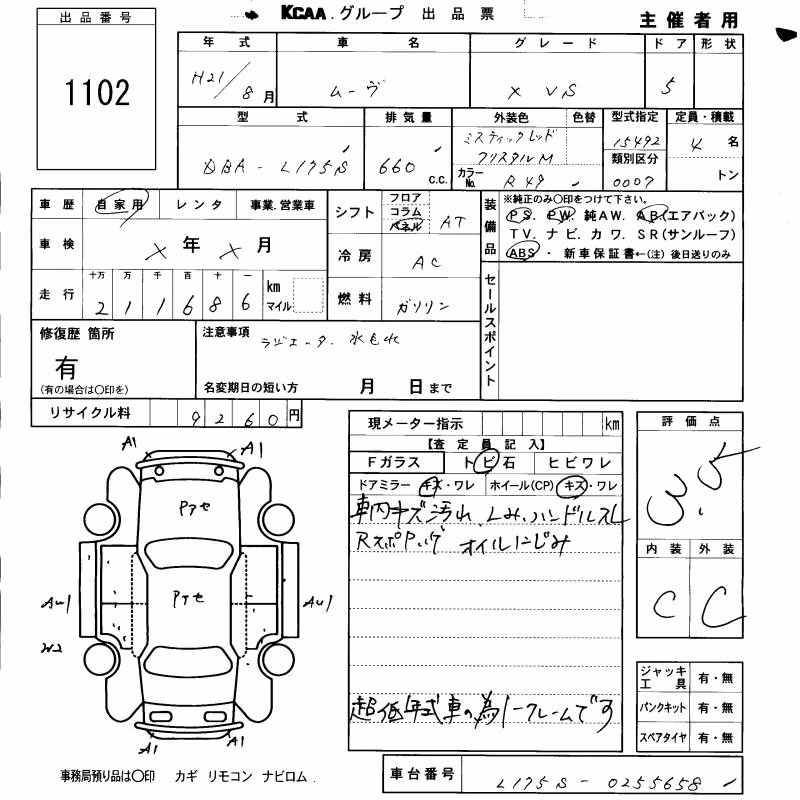 KCAA.グループ 出品票
主催者用
出品番号
1102
年式 車名 グレード ドア 形状
H21/8月 ムーヴ X VS 5
型式 排気量 外装色 色替 型式指定 定員・積載
DBA-L175S 660 c.c. ミスティックレッド クリスタルM 15492 4名
カラーNo. R49 類別区分 0007 トン
車歴 自家用 レンタ 事業.営業車
シフト フロア コラム パネル AT
装備品 ※純正のみ〇印をつけて下さい。
PS. PW. 純AW. AB(エアバック)
TV. ナビ. カワ. SR(サンルーフ)
ABS ・ 新車保証書←(注) 後日送りのみ
車検 X年X月
冷房 AC
走行 十万 万 千 百 十 一 km マイル
211686
燃料 ガソリン
セールスポイント
修復歴 箇所
有
(有の場合は〇印を)
注意事項 ラジエーター 水もれ
名変期日の短い方 月 日まで
リサイクル料 9260円
現メーター指示 km
【査定員記入】
Fガラス トビ石 ヒビワレ
ドアミラー キズ・ワレ ホイール(CP) キズ・ワレ
車内キズ汚れ、シミ、ハンドルスレ
オイルにじみ
超低年式車の為ノークレームです
評価点
3.5
内装 外装
C C
ジャッキ工具 有・無
パンクキット 有・無
スペアタイヤ 有・無
A1 A1
Pアセ
Pアセ
AU1 AU1
W2
A1 A1
事務局預り品は〇印 カギ リモコン ナビロム.
車台番号 L175S-0255658